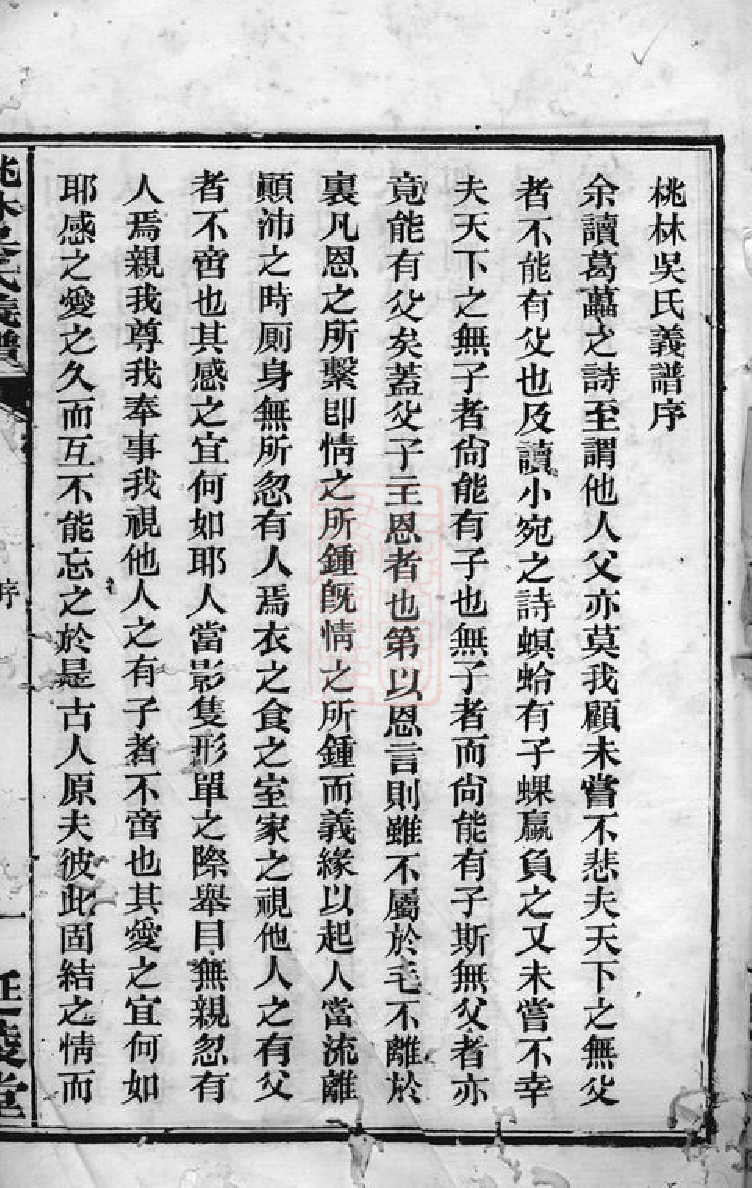 桃林吳氏義譜序
余讀葛藟之詩至謂他人父亦莫我顧未嘗不悲夫天下之無父
者不能有父也及讀小宛之詩螟蛤有子蜾蠃負之又未嘗不幸
夫天下之無子者尙能有子也無子者而尙能有子斯無父者亦
竟能有父矣蓋父子主恩者也第以恩言則雖不屬於毛不離於
裏凡恩之所繫卽情之所鍾旣情之所鍾而義緣以起人當流離
顚沛之時厠身無所忽有人焉衣之食之室家之視他人之有父
者不啻也其感之宜何如耶人當影隻形單之際舉目無親忽有
人焉親我尊我奉事我視他人之有子者不啻也其愛之宜何如
耶感之愛之久而互不能忘之於是古人原夫彼此固結之情而
桃林吳氏義譜
序
一
延陵堂